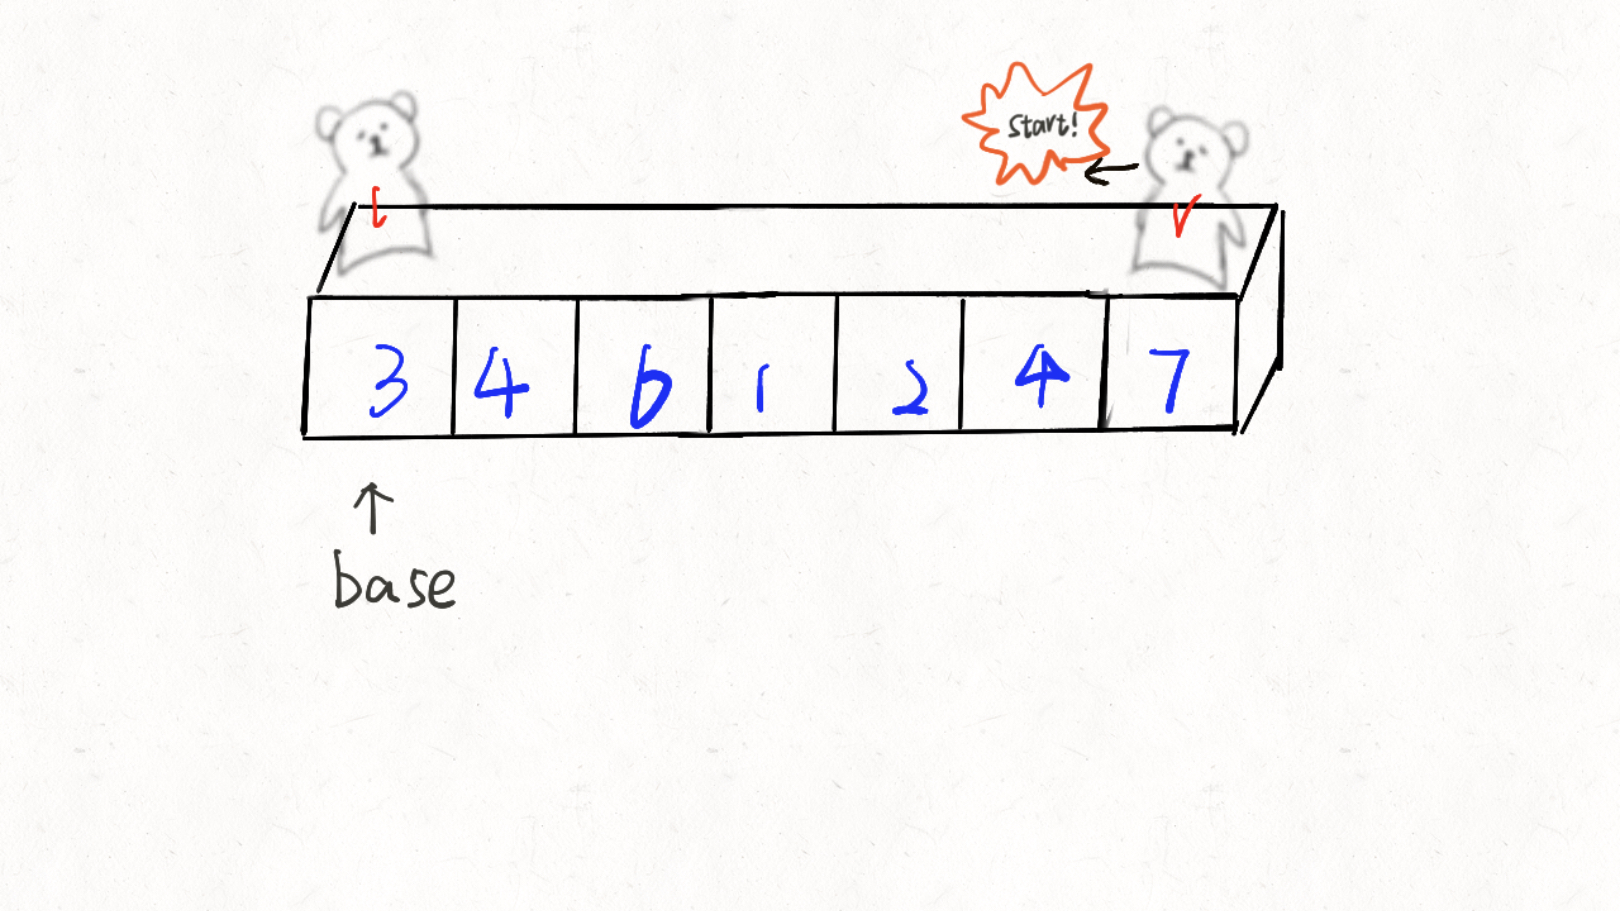 Start!
l r
3 4 6 1 2 4 7
base